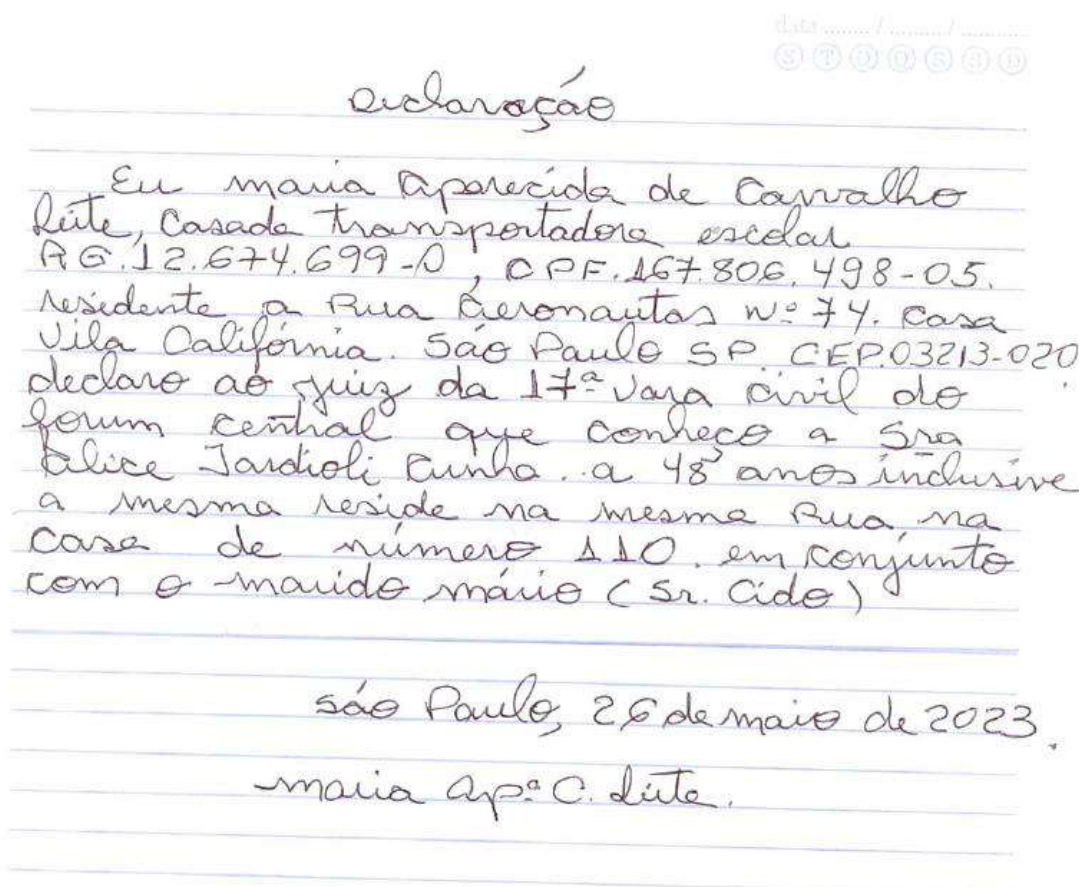 data ........ / ........ / ........
S T Q Q S S D
Declaração
Eu maria Aparecida de Carvalho
leite, Casada transportadora escolar
RG.12.674.699-0, CPF.167.806.498-05.
residente a Rua Aeronautas Nº 74. casa
Vila Califórnia. São Paulo SP. CEP.03213-020
declaro ao juiz da 17ª Vara civil do
forum central que conheço a Sra
Alice Jardioli Cunha. a 48 anos inclusive
a mesma reside na mesma Rua na
casa de número 110. em conjunto
com o marido mário (Sr. Cido)
são Paulo, 26 de maio de 2023.
maria apª C. leite.